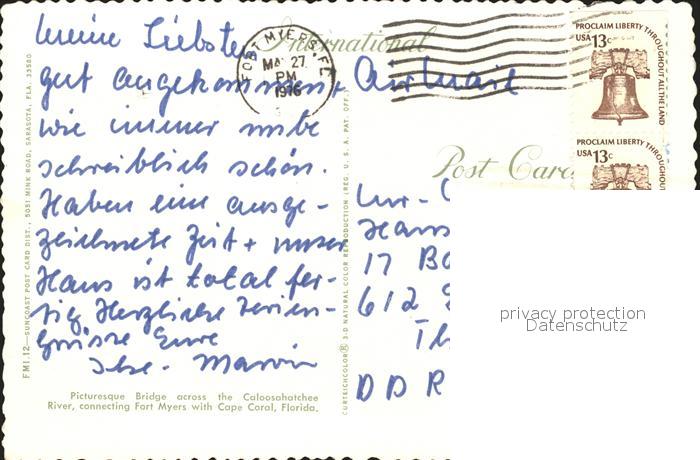 Meine Liebsten
gut angekommen +
wie immer unbe
schreiblich schön.
Haben eine ausge-
zeichnete Zeit + unser
Haus ist total fer-
tig Herzliche Ferien-
Grüsse Eure
Ilse. Marvin
International
Air Mail
FORT MYERS, FL
27
PM
1976
PROCLAIM LIBERTY THROUGHOUT ALL THE LAND
USA 13c
PROCLAIM LIBERTY THROUGHOUT
USA 13c
Post Card
Hans
17 Bo
612
Th
DDR
privacy protection
Datenschutz
FMI.12—SUNCOAST POST CARD DIST., 5051 MINK ROAD, SARASOTA, FLA. 33580
CURTEICHCOLOR® 3-D NATURAL COLOR REPRODUCTION (REG. U. S. A. PAT. OFF.)
Picturesque Bridge across the Caloosahatchee
River, connecting Fort Myers with Cape Coral, Florida.